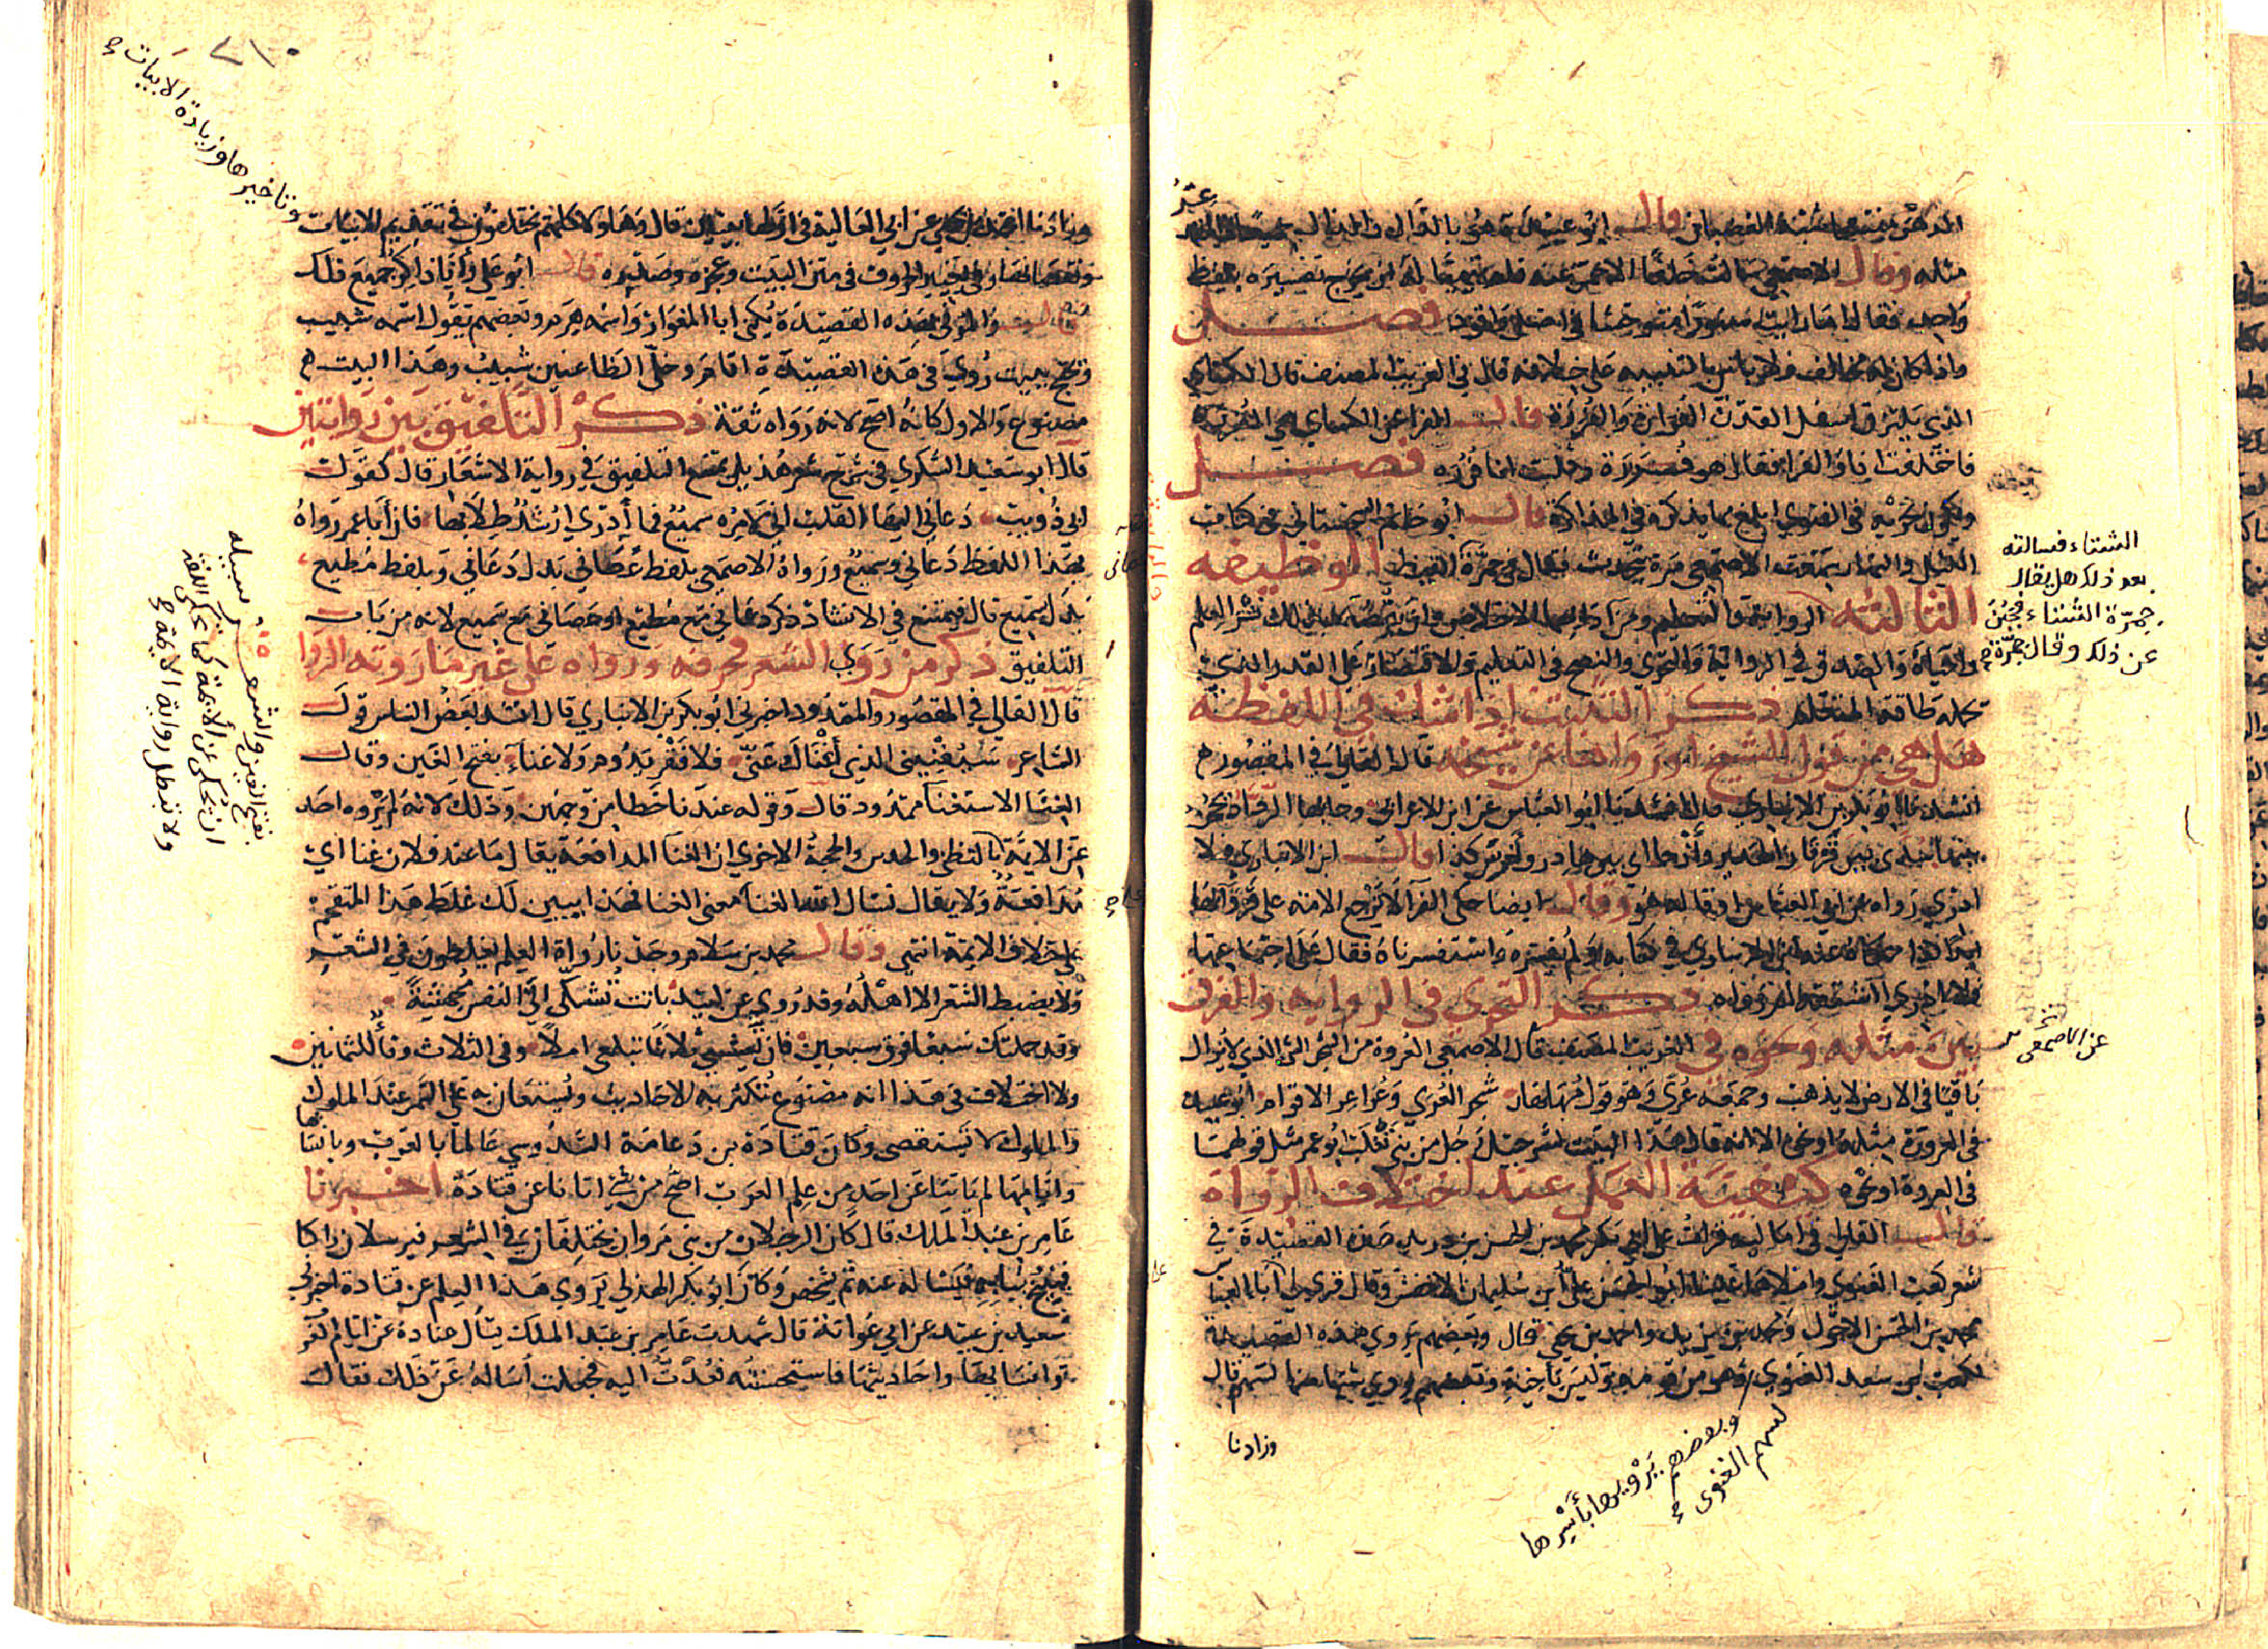 المدهن نقرة
مثله وقال الاصمعي سالت خلفا الاحمر عنه فلم
واحد فصل
واذا كان له مخالف فلا باس بالتنبيه على خلافه قال في الغريب المصنف قال الكسائي
الذي يلتزق اسفل القدر القرارة والقرورة قال الفرا عن الكسائي هي القررة
فاختلفت انا والفرا فقال هو قررة وقلت انا قررة فصل
ويكون تحريه في الفتوي ابلغ مما يذكره في المذاكرة قال ابو حاتم السجستاني في كتاب
الليل والنهار سمعت الاصمعي مرة يتحدث فقال في حمرة القيظ الوظيفه
الثالثة الرواية والتعليم ومن آدابهما الاخلاص وان يقصد بذلك نشر العلم
واحياه والصدق في الرواية والتحري والنصح في التعليم والاقتصار على القدر الذي
تحمله طاقة المتعلم ذكر التثبت اذا شك في اللفظة
هل هي من قول الشيخ او رواها عن شيخه قال القالي في المقصور
انشدنا ابو بكر بن الانباري قال انشدنا ابو العباس عن ابن الاعرابي
قال ابن الانباري فلا
ادري رواه عن ابي العباس او قاله هو وقال ايضا حكى الفرا لا ترجع الامة على قروائها
ابدا كذا حكاه عنه ابن الانباري في كتابه ولم يفسره فاستفسرناه فقال على اجتماعها
فلا ادري اشتقه ام رواه ذكر التحري في الرواية والفرق
بين مثله ونحوه في الغريب المصنف قال الاصمعي العروة من الشجر الذي لا يزال
باقيا في الارض لا يذهب وجمعه عرى وهو قول مهلهل شجر العرى وعراعر الاقوام ابو عبيدة
في العروة مثله او نحوه الا انه قال هذا البيت لشرحبيل رجل من بني تغلب ابو عمرو مثل قولهما
في العروة او نحوه كيفية العمل عند اختلاف الرواة
قال القالي في اماليه قرات على ابي بكر محمد بن الحسن بن دريد هذه القصيدة في
شعر كعب الغنوي واملاها علينا ابو الحسن علي بن سليمان الاخفش وقال قرى لي آبا العباس
محمد بن الحسن الاحول ومحمد بن يزيد واحمد بن يحيى قال وبعضهم يروي هذه القصيدة
لكعب بن سعد الغنوي وهو من قومه وليس باخيه وبعضهم يروي شيئا منها لسهم قال
عند
الشتاء فسالته
بعد ذلك هل يقال
حمرة الشتاء فجبن
عن ذلك وقال حمرة
عن الاصمعي
وبعضهم يرويها بأسرها
لسهم الغنوي
وزادنا
٢١٠
وتاخيرها وزيادة الابيات
وزادنا احمد بن يحيى عن ابي العالية في اولها بيتين قال وهاولا كلهم مختلفون في تقديم الابيات
ونقصانها وفي تغيير الحروف في متن البيت وعجزه وصدره قال ابو علي وأنا ذاكر جميع ذلك
قال والمرثي بهذه القصيدة يكنى ابا المغوار واسمه هرم وبعضهم يقول اسمه شبيب
ويحتج ببيت روي في هذه القصيدة اقام وخلى الظاعنين شبيب وهذا البيت
مصنوع والاول كانه اصح لانه رواه ثقة ذكر التلفيق بين روايتين
قال ابو سعيد السكري في شرح شعر هذيل يمتنع التلفيق في رواية الاشعار قال كقول
ابي ذويب دعاني اليها القلب اني لامره سميع فما أدري ارشد طلابها فان أبا عمرو رواه
بهذا اللفظ دعاني وسميع ورواه الاصمعي بلفظ عصاني بدل دعاني وبلفظ مطيع
بدل سميع قال فيمتنع في الانشاد ذكر دعاني مع مطيع او عصاني مع سميع لانه من باب
التلفيق ذكر من روى الشعر فحرفه ورواه على غير ما روته الرواة
قال القالي في المقصور والممدود اخبرني ابو بكر بن الانباري قال انشد بعض الناس قول
الشاعر سيغنيني الذي أغناك عني فلا فقر يدوم ولا غناء بفتح الغين وقال
الغنا الاستغنا ممدود قال وقوله عندنا خطا من وجهين وذلك لانه لم يروه احد
عن الايمة بالفتح والحجة الاخرى ان الغنا المدافعة يقال ما عند فلان غنا اي
مدافعة ولا يقال نسال الله الغنا بمعنى الغنا فهذا يبين لك غلط هذا المتقحم
على خلاف الايمة انتهى وقال محمد بن سلام وجدنا رواة العلم يغلطون في الشعر
ولا يضبط الشعر الا اهله وقد روي عن لبيد باتت تشكى الي النفس مجهشة
وقد حملتك سبعا فوق سبعين فان تعيشي ثلاثا تبلغي املا وفي الثلاث وفا للثمانين
ولا اختلاف في هذا انه مصنوع تكثر به الاحاديث ويستعان به على السمر عند الملوك
والملوك لا تستقصى وكان قتادة بن دعامة السدوسي عالما بالعرب وبانسابها
وايامها لم ياتنا عن احد من علم العرب اصح من شي اتانا عن قتادة اخبرنا
عامر بن عبد الملك قال كان الرجلان من بني مروان يختلفان في الشعر فيرسلان راكبا
فينيخ ببابه فيساله عنه ثم يشخص وكان ابو بكر الهذلي يروي هذا العلم عن قتادة اخبرني
سعيد بن عبيد عن ابي عوانة قال شهدت عامر بن عبد الملك يسال قتادة عن ايام العرب
وانسابها واحاديثها فاستحسنته فعدت اليه فجعلت اساله عن ذلك فقال
بفتح الغين والشعر سبيله
ان يحكى عن الأيمة كما تحكى اللغة
ولا تبطل رواية الايمة